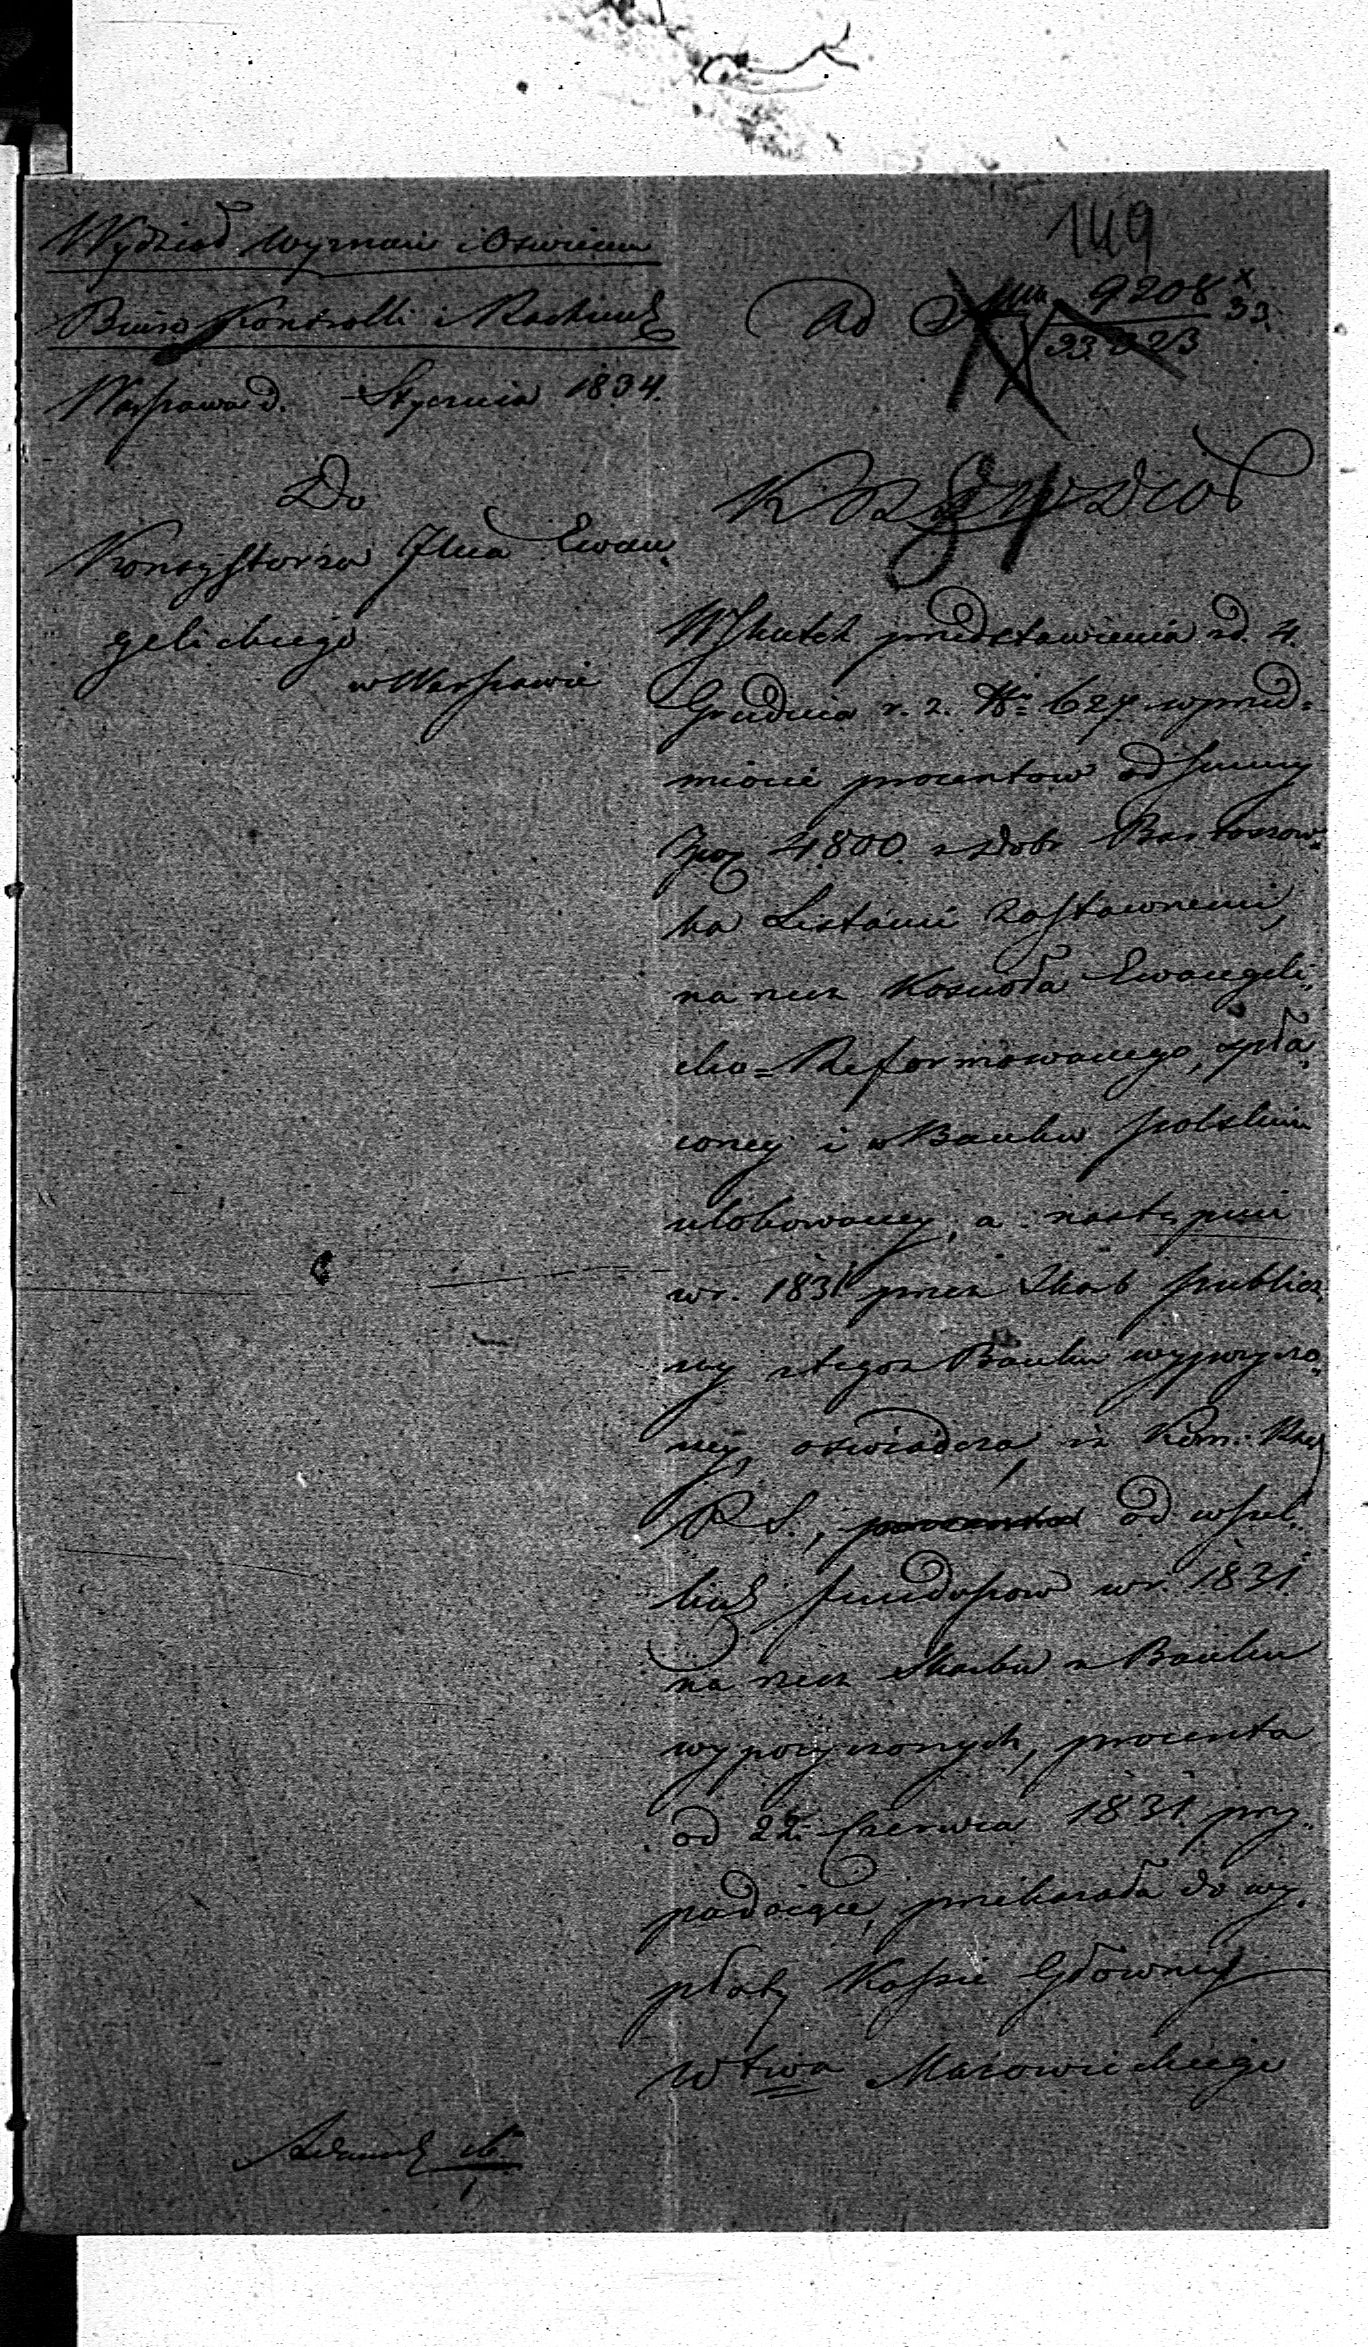 149
Wydział Wyznań i Oswiecen
Biuro Kontrolli i Rachunk
Warszawa d. - Stycznia 1834.
Ad 9208
33
23,023
Do
Konsystorza Jlnа Ewan
gelickiego
w Warszawie
K R S W D i O P
W skutek przedstawienia z d. 4.
Grudnia r. z. No 627 w przed=
miocie procentow od summy
Zpol 4800. z Dobr Bartoszow=
ka Listami Zastawnemi,
na rzecz Koscioła Ewangeli=
cko=Reformowanego, spła
coney i w Banku polskim
ulokowaney, a nastepnie
w r. 1831 przez Skarb publicz
ny z tegoz Banku wypozyczo
ney, oswiadcza, iz Kom: Rzą
P. S., od wszel=
kich funduszow w r. 1831
na rzecz Skarbu z Banku
wypozyczonych, procenta
od 22. Czerwca 1831. przy=
padaiące, przekazała do wy=
płaty Kassie Główney
Wtwa Mazowieckiego